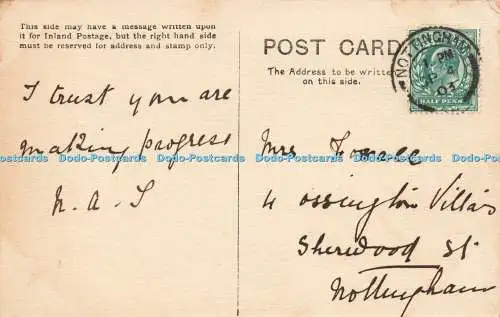 This side may have a message written upon
it for Inland Postage, but the right hand side
must be reserved for address and stamp only.
POST CARD
The Address to be written
on this side.
NOTTINGHAM
HALF PENNY
I trust you are
making progress
N. A. S
Mrs
4 Ossington Villas
Sherwood St
Nottingham
Dodo-Postcards Dodo-Postcards Dodo-Postcards Dodo-Postcards Dodo-Postcards Dodo-Postcards